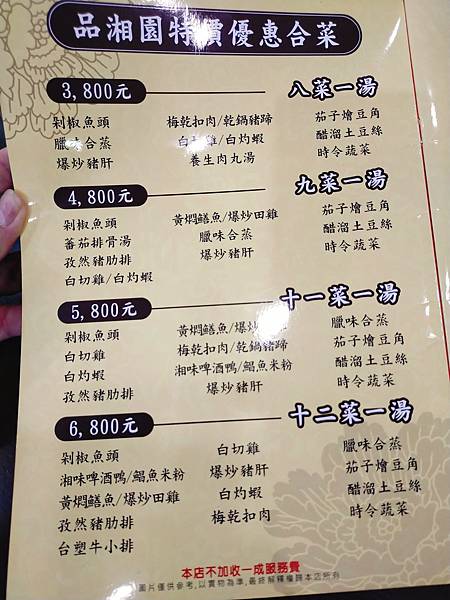 品湘園特價優惠合菜
3,800元 八菜一湯
剁椒魚頭 梅乾扣肉/乾鍋豬蹄 茄子燴豆角
臘味合蒸 白切雞/白灼蝦 醋溜土豆絲
爆炒豬肝 養生肉丸湯 時令蔬菜
4,800元 九菜一湯
剁椒魚頭 黃燜鱔魚/爆炒田雞 茄子燴豆角
蕃茄排骨湯 臘味合蒸 醋溜土豆絲
孜然豬肋排 爆炒豬肝 時令蔬菜
白切雞/白灼蝦
5,800元 十一菜一湯
剁椒魚頭 黃燜鱔魚/爆炒田雞 臘味合蒸
白切雞 梅乾扣肉/乾鍋豬蹄 茄子燴豆角
白灼蝦 湘味啤酒鴨/鯧魚米粉 醋溜土豆絲
孜然豬肋排 爆炒豬肝 時令蔬菜
6,800元 十二菜一湯
剁椒魚頭 白切雞 臘味合蒸
湘味啤酒鴨/鯧魚米粉 爆炒豬肝 茄子燴豆角
黃燜鱔魚/爆炒田雞 白灼蝦 醋溜土豆絲
孜然豬肋排 梅乾扣肉 時令蔬菜
台塑牛小排
本店不加收一成服務費
圖片僅供參考,以實物為準,最終解釋權歸本店所有